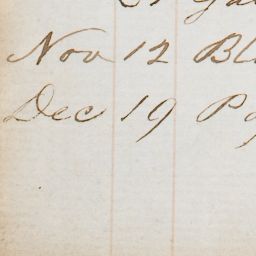 Nov 12 Bl
Dec 19 P